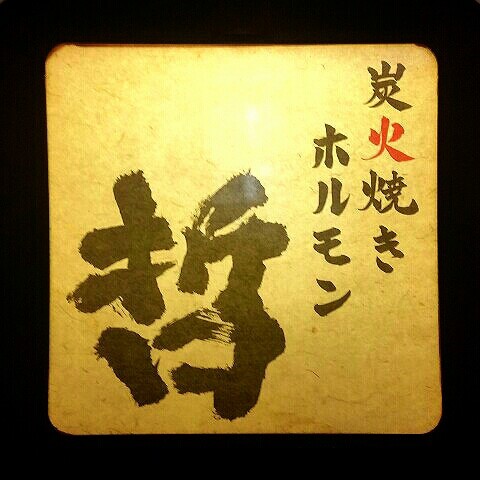 炭火焼き
ホルモン
哲